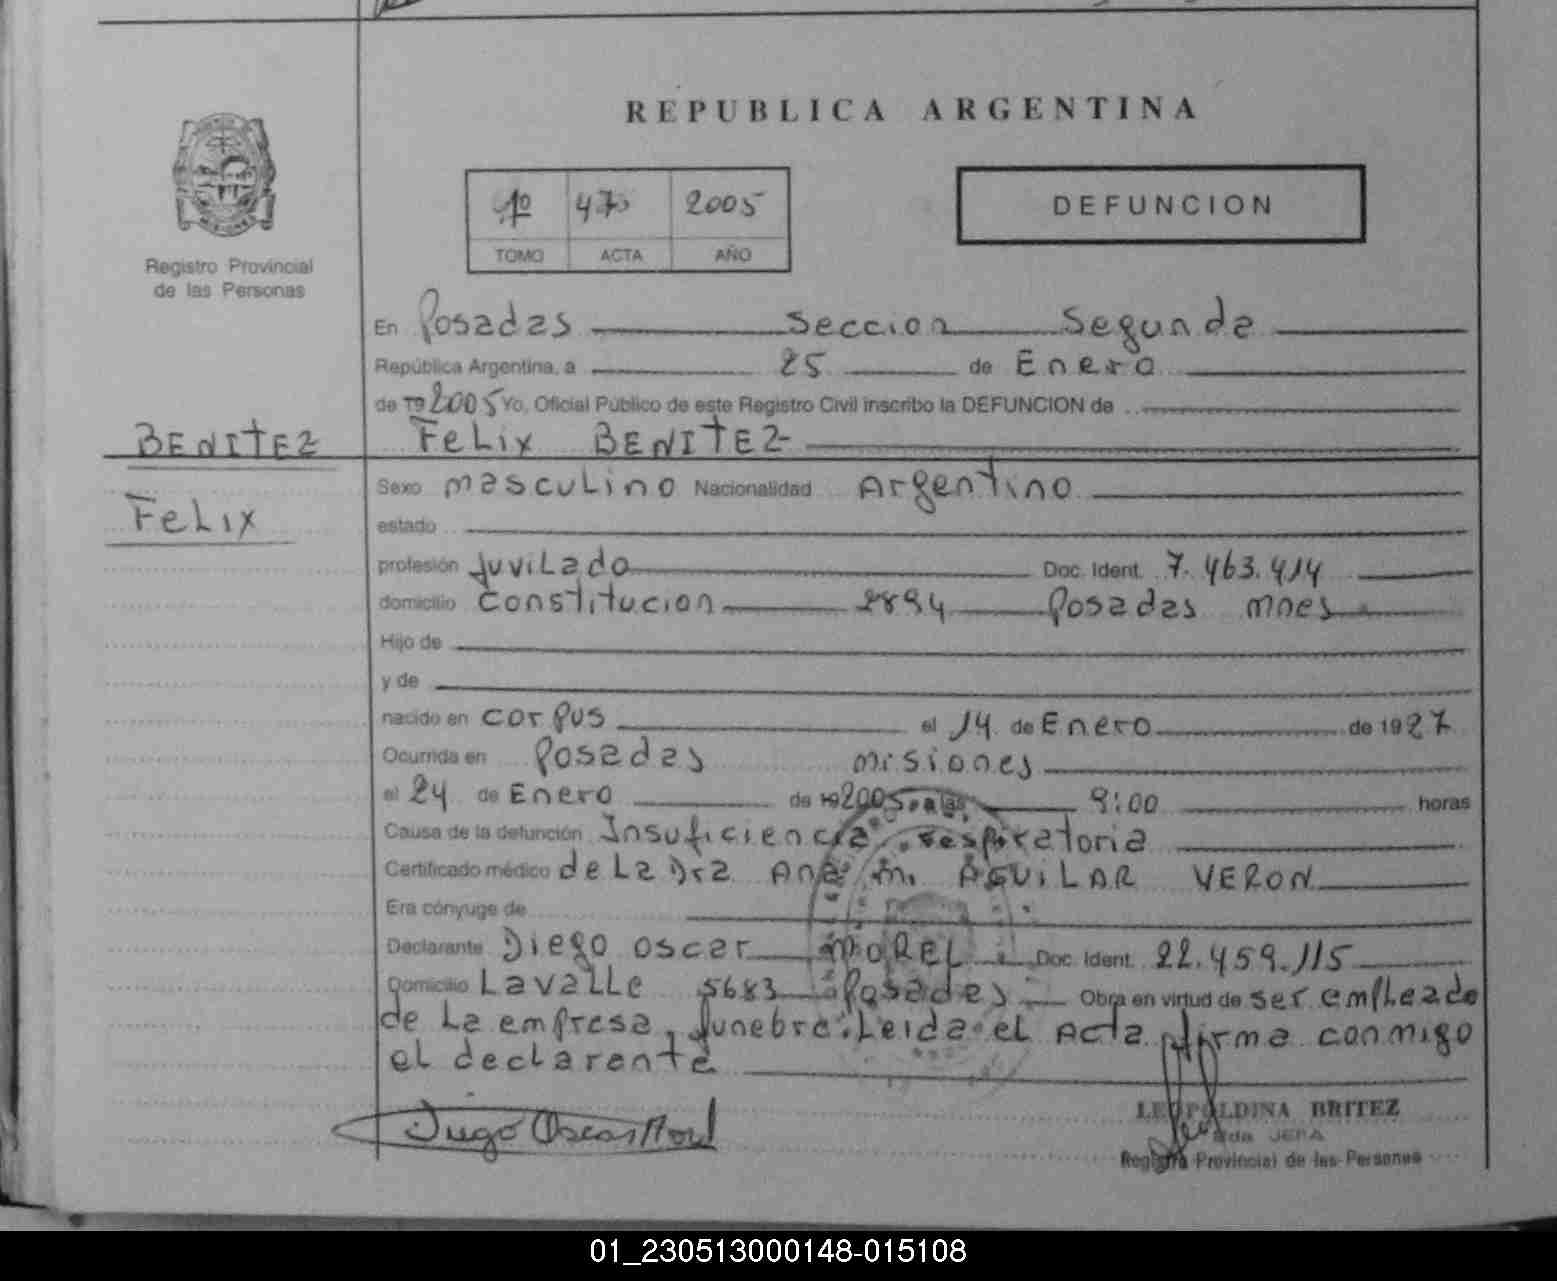 REPUBLICA ARGENTINA
1º 2005
TOMO ACTA AÑO
DEFUNCION
Registro Provincial
de las Personas
En Posadas seccion segunda
República Argentina, a 25 de Enero
de 19 2005 Yo, Oficial Público de este Registro Civil inscribo la DEFUNCION de
BENITEZ
Felix BENITEZ
Felix
Sexo masculino Nacionalidad Argentino
estado
profesión Juvilado Doc. Ident. 7.463.414
domicilio constitucion 2894 Posadas mnes
Hijo de
y de
nacido en corpus el 14 de Enero de 1927
Ocurrida en Posadas misiones
el 24 de Enero de 19 2005 a las 9:00 horas
Causa de la defunción Insuficiencia respiratoria
Certificado médico de La Dra Ana m. AGUILAR VERON
Era cónyuge de
Declarante Diego oscar MOREL Doc. Ident. 22.459.115
Domicilio Lavalle 5683 Posadas Obra en virtud de ser empleado
de La empresa funebre. Leida el Acta firma conmigo
el declarante
Diego Oscar Morel
LEOPOLDINA BRITEZ
2da JEFA
Registro Provincial de las Personas
01_230513000148-015108